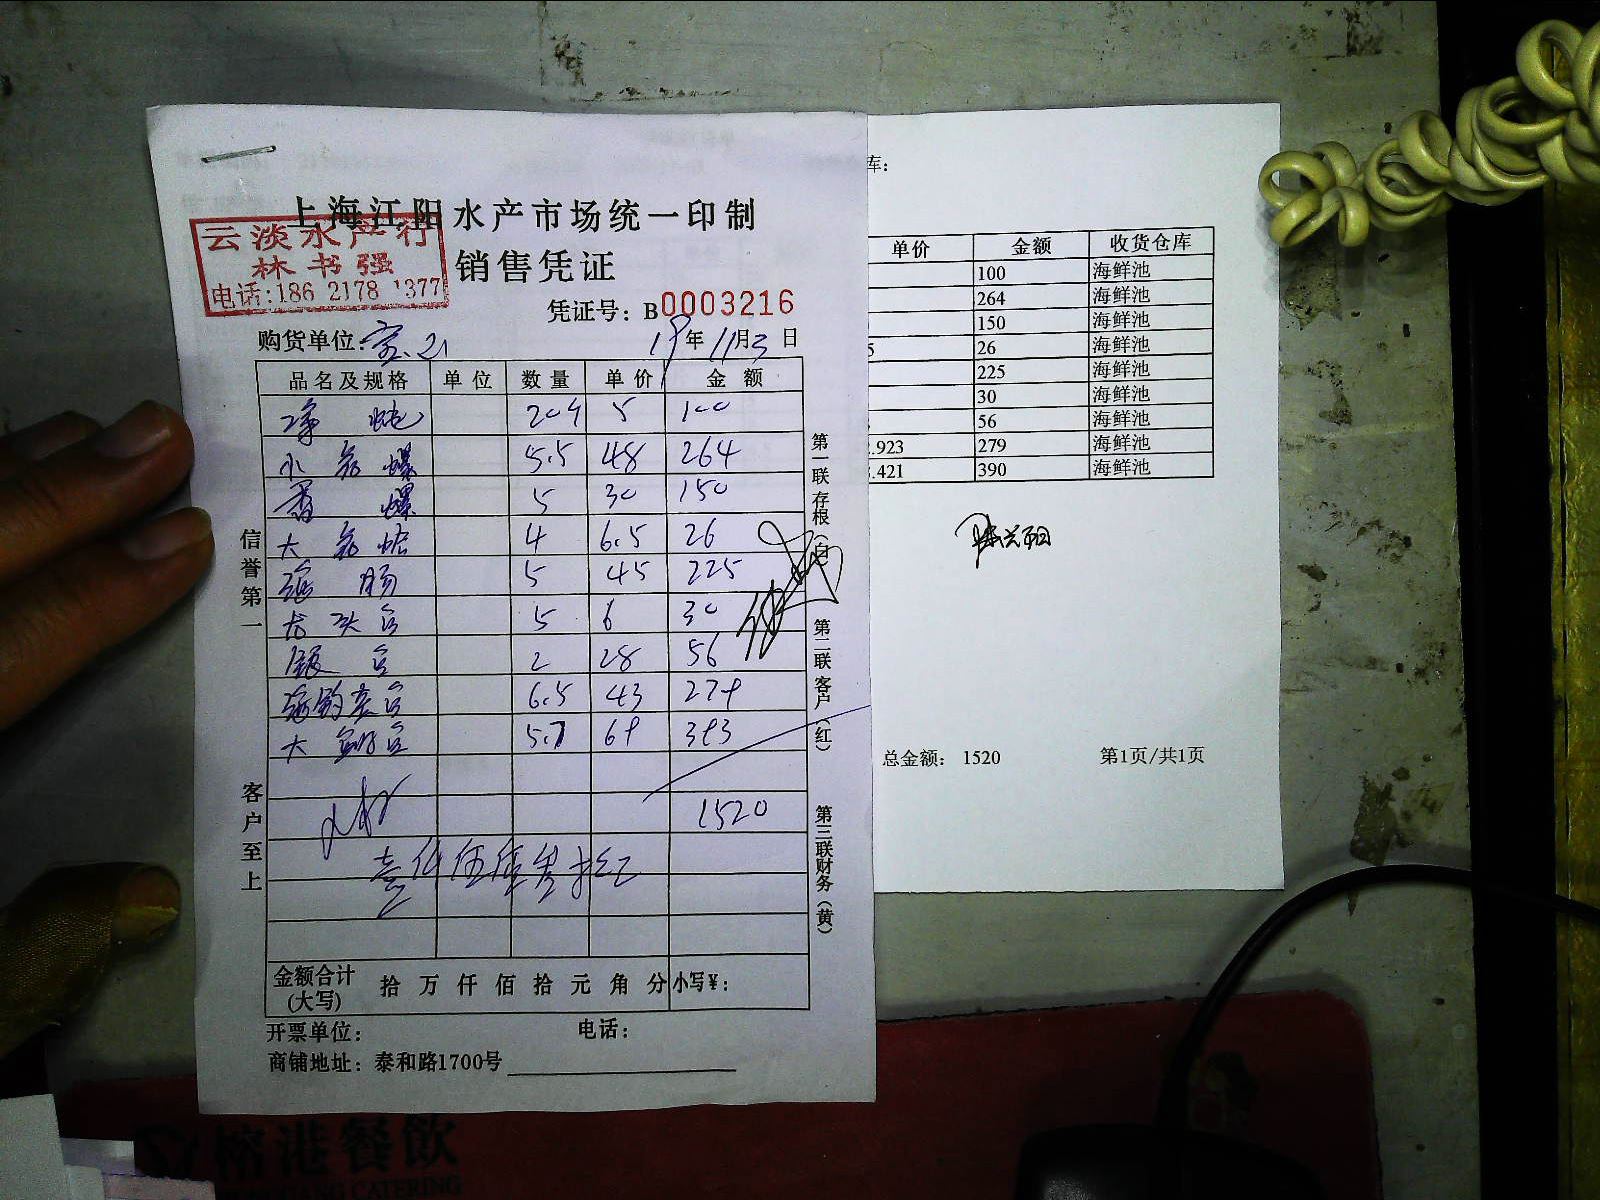 上海江阳水产市场统一印制
云淡水产行
林书强
电话:186 2178 1377
销售凭证
凭证号: B0003216
购货单位:
19年11月3日
品名及规格 单位 数量 单价 金额
5 100
小 螺 5.5 48 264
香 螺 5 30 150
大 4 6.5 26
海 肠 5 45 225
5 6 30
2 28 56
6.5 43 279
大 5.7 69 393
1520
壹仟伍佰 拾
金额合计
(大写)
拾 万 仟 佰 拾 元 角 分 小写¥:
开票单位: 电话:
商铺地址: 泰和路1700号
信誉第一
客户至上
第一联 存根(白)
第二联 客户(红)
第三联 财务(黄)
库:
单价 金额 收货仓库
100 海鲜池
264 海鲜池
150 海鲜池
5 26 海鲜池
225 海鲜池
30 海鲜池
56 海鲜池
.923 279 海鲜池
.421 390 海鲜池
总金额: 1520 第1页/共1页
榕港餐饮
CATERING